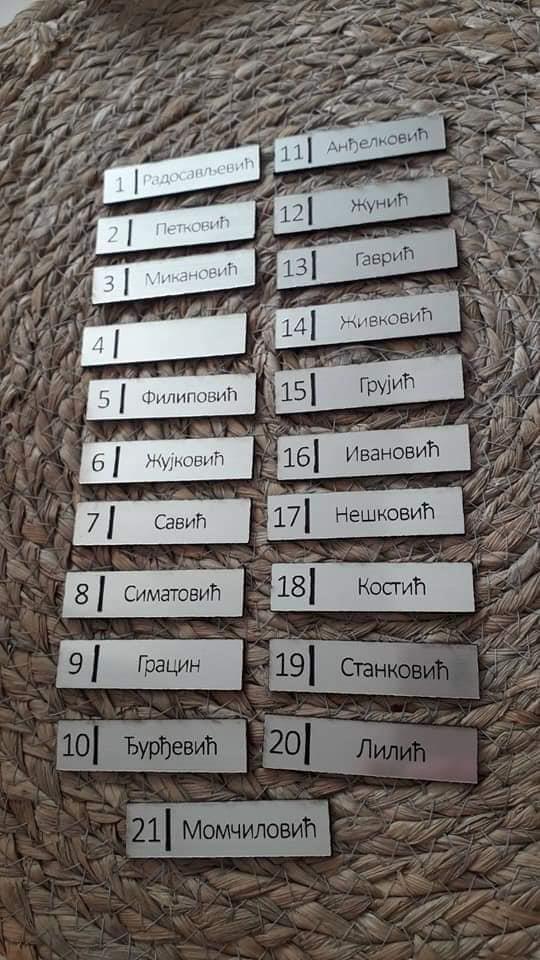 1 | Радосављевић
2 | Петковић
3 | Микановић
4 |
5 | Филиповић
6 | Жујковић
7 | Савић
8 | Симатовић
9 | Грацин
10 | Ђурђевић
11 | Анђелковић
12 | Жунић
13 | Гаврић
14 | Живковић
15 | Грујић
16 | Ивановић
17 | Нешковић
18 | Костић
19 | Станковић
20 | Лилић
21 | Момчиловић